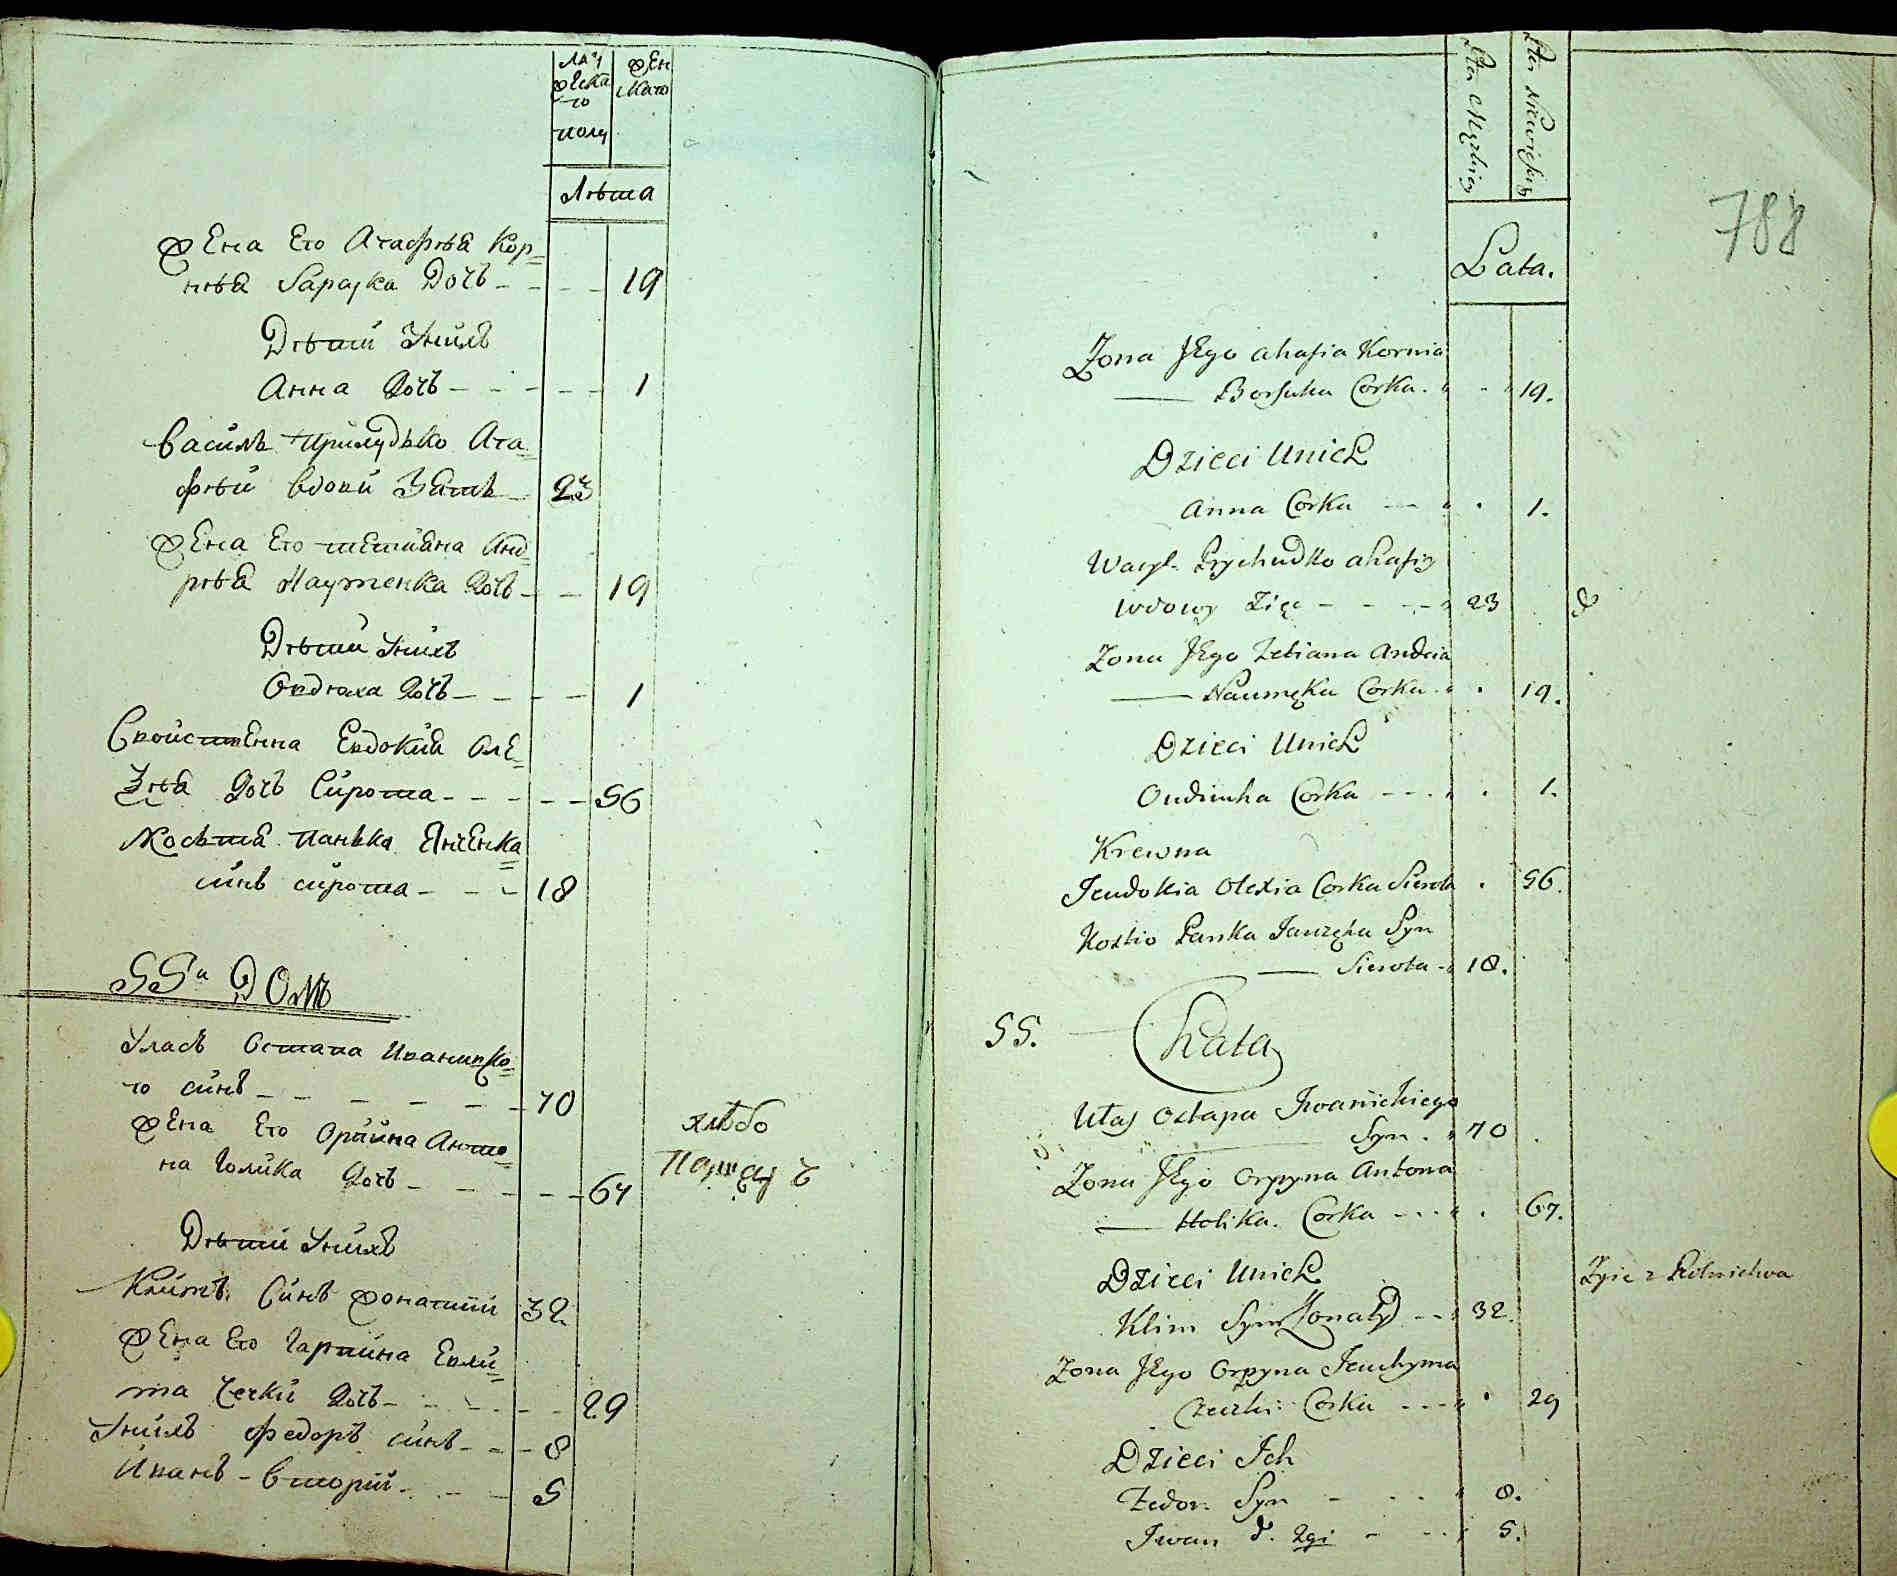 Лѣта
жена его Агафѣя Кор=
нѣя Барсука дочь 19
Дѣти У нихъ
Анна дочь 1
Василь Прихудько Ага=
фѣи вдови Зять 23
жена его Тетияна Анд=
рѣя Науменка дочь 19
Дѣти У нихъ
Овдюха дочь 1
Свойственна Евдокия Оле=
ксѣя дочь Сирота 56
Костя Панька Янченка
синъ сирота 18
55й ДОМЪ
Уласъ Остапа Иваницко=
го синъ 70
жена его Орпина Анто=
на Голика дочь 67
хлѣбо
Пашецъ
Дѣти У нихъ
Климъ Синъ жонатий 32
жена его Гарпина Евхи=
ма Чечки дочь 29
У нихъ Федоръ синъ 8
Иванъ вторий 5
Lat Męzkiey
Lat Niewieskiey
788
Lata.
Zona Jego Ahafia Kornia
Borsuka Corka. 19.
Dzieci U nich
Anna Corka 1.
Wasyl Prychudko Ahafiy
wdowy Zięć 23
Zona Jego Tetiana Andria
Naumęka Corka 19.
Dzieci U nich
Oudiuha Corka 1.
Krewna
Jeudokia Olexia Corka Sierota 56.
Kostio Pańka Janczęka Syn
Sierota 18.
55. Chata
Ułas Ostapa Iwanickiego
Syn. 70
Zona Jego Orpyna Antona
Holika. Corka 67.
Dzieci U nich
Zyie z Rolnictwa
Klim Syn Zonaty 32.
Zona Jego Orpyna Jeuchyma
Czeczki Corka 29
Dzieci Ich
Fedor Syn 8.
Iwan d. 2gi 5.